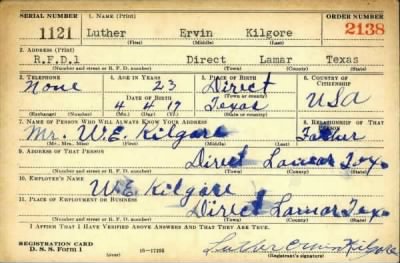 SERIAL NUMBER 1. NAME (Print) ORDER NUMBER
1121 Luther Ervin Kilgore 2138
(First) (Middle) (Last)
2. ADDRESS (Print)
R.F.D.1 Direct Lamar Texas
(Number and street or R. F. D. number) (Town) (County) (State)
3. TELEPHONE 4. AGE IN YEARS 5. PLACE OF BIRTH 6. COUNTRY OF CITIZENSHIP
None 23 Direct
DATE OF BIRTH (Town or county)
4 4 17 Texas USA
(Mo.) (Day) (Yr.) (State or country)
7. NAME OF PERSON WHO WILL ALWAYS KNOW YOUR ADDRESS 8. RELATIONSHIP OF THAT PERSON
Mr. W.E. Kilgore Father
(Mr., Mrs., Miss) (First) (Middle) (Last)
9. ADDRESS OF THAT PERSON
Direct Lamar Tex
(Number and street or R. F. D. number) (Town) (County) (State)
10. EMPLOYER'S NAME
W.E. Kilgore
11. PLACE OF EMPLOYMENT OR BUSINESS
Direct Lamar Tex
(Number and street or R. F. D. number) (Town) (County) (State)
I AFFIRM THAT I HAVE VERIFIED ABOVE ANSWERS AND THAT THEY ARE TRUE.
REGISTRATION CARD
D. S. S. Form 1 16-17105 Luther Ervin Kilgore
(over) (Registrant's signature)